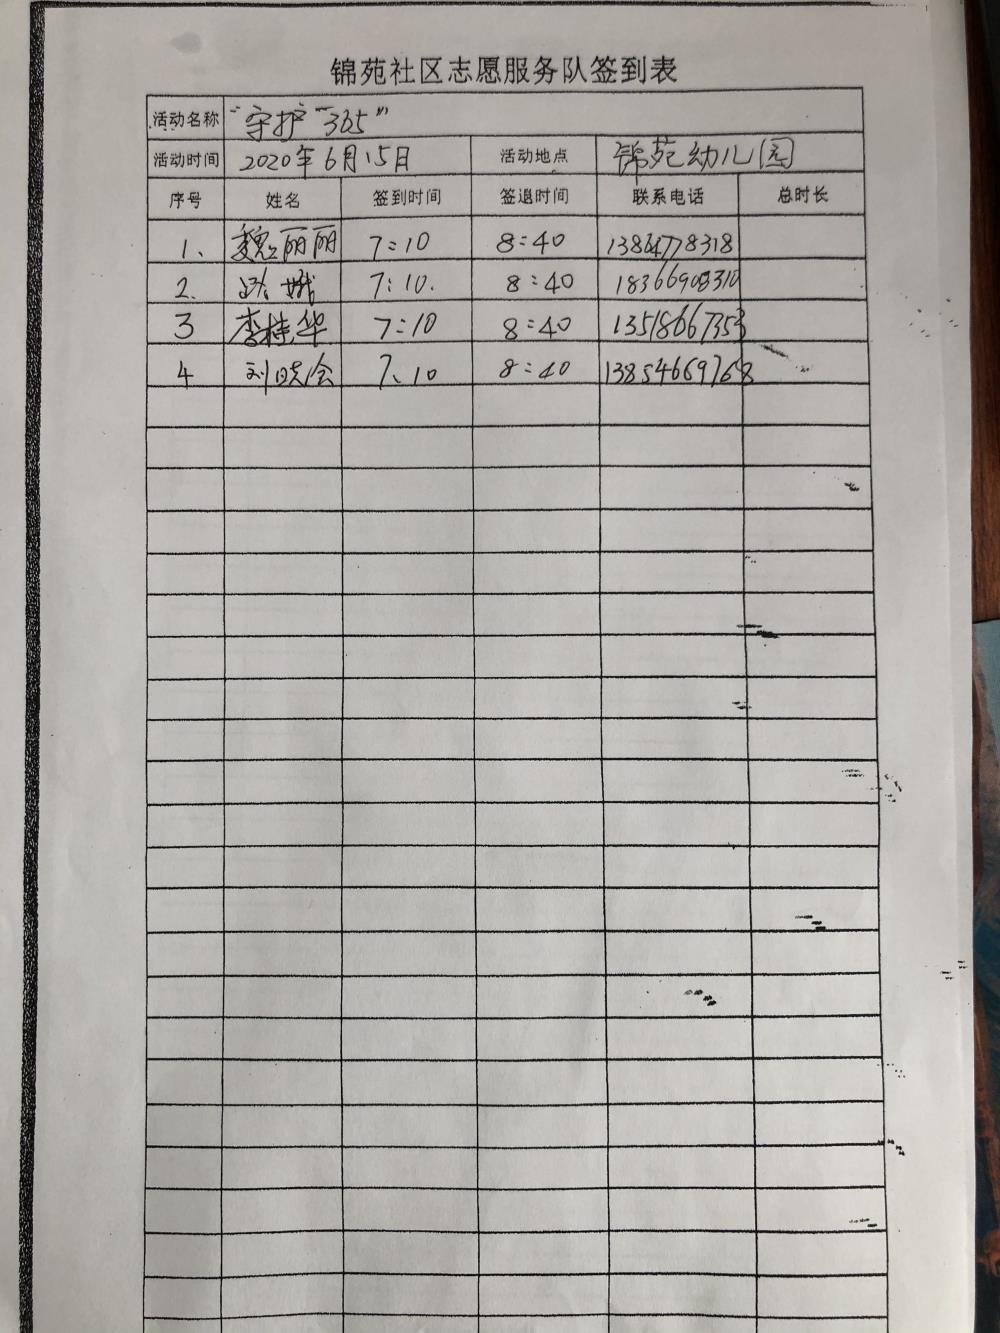 锦苑社区志愿服务队签到表
活动名称 "守护"365"
活动时间 2020年6月15日 活动地点 锦苑幼儿园
序号 姓名 签到时间 签退时间 联系电话 总时长
1、 魏丽丽 7:10 8:40 13864778318
2. 娥 7:10. 8:40 18366908310
3 李桂华 7:10 8:40 13518667353
4 刘晓会 7、10 8:40 13854669768